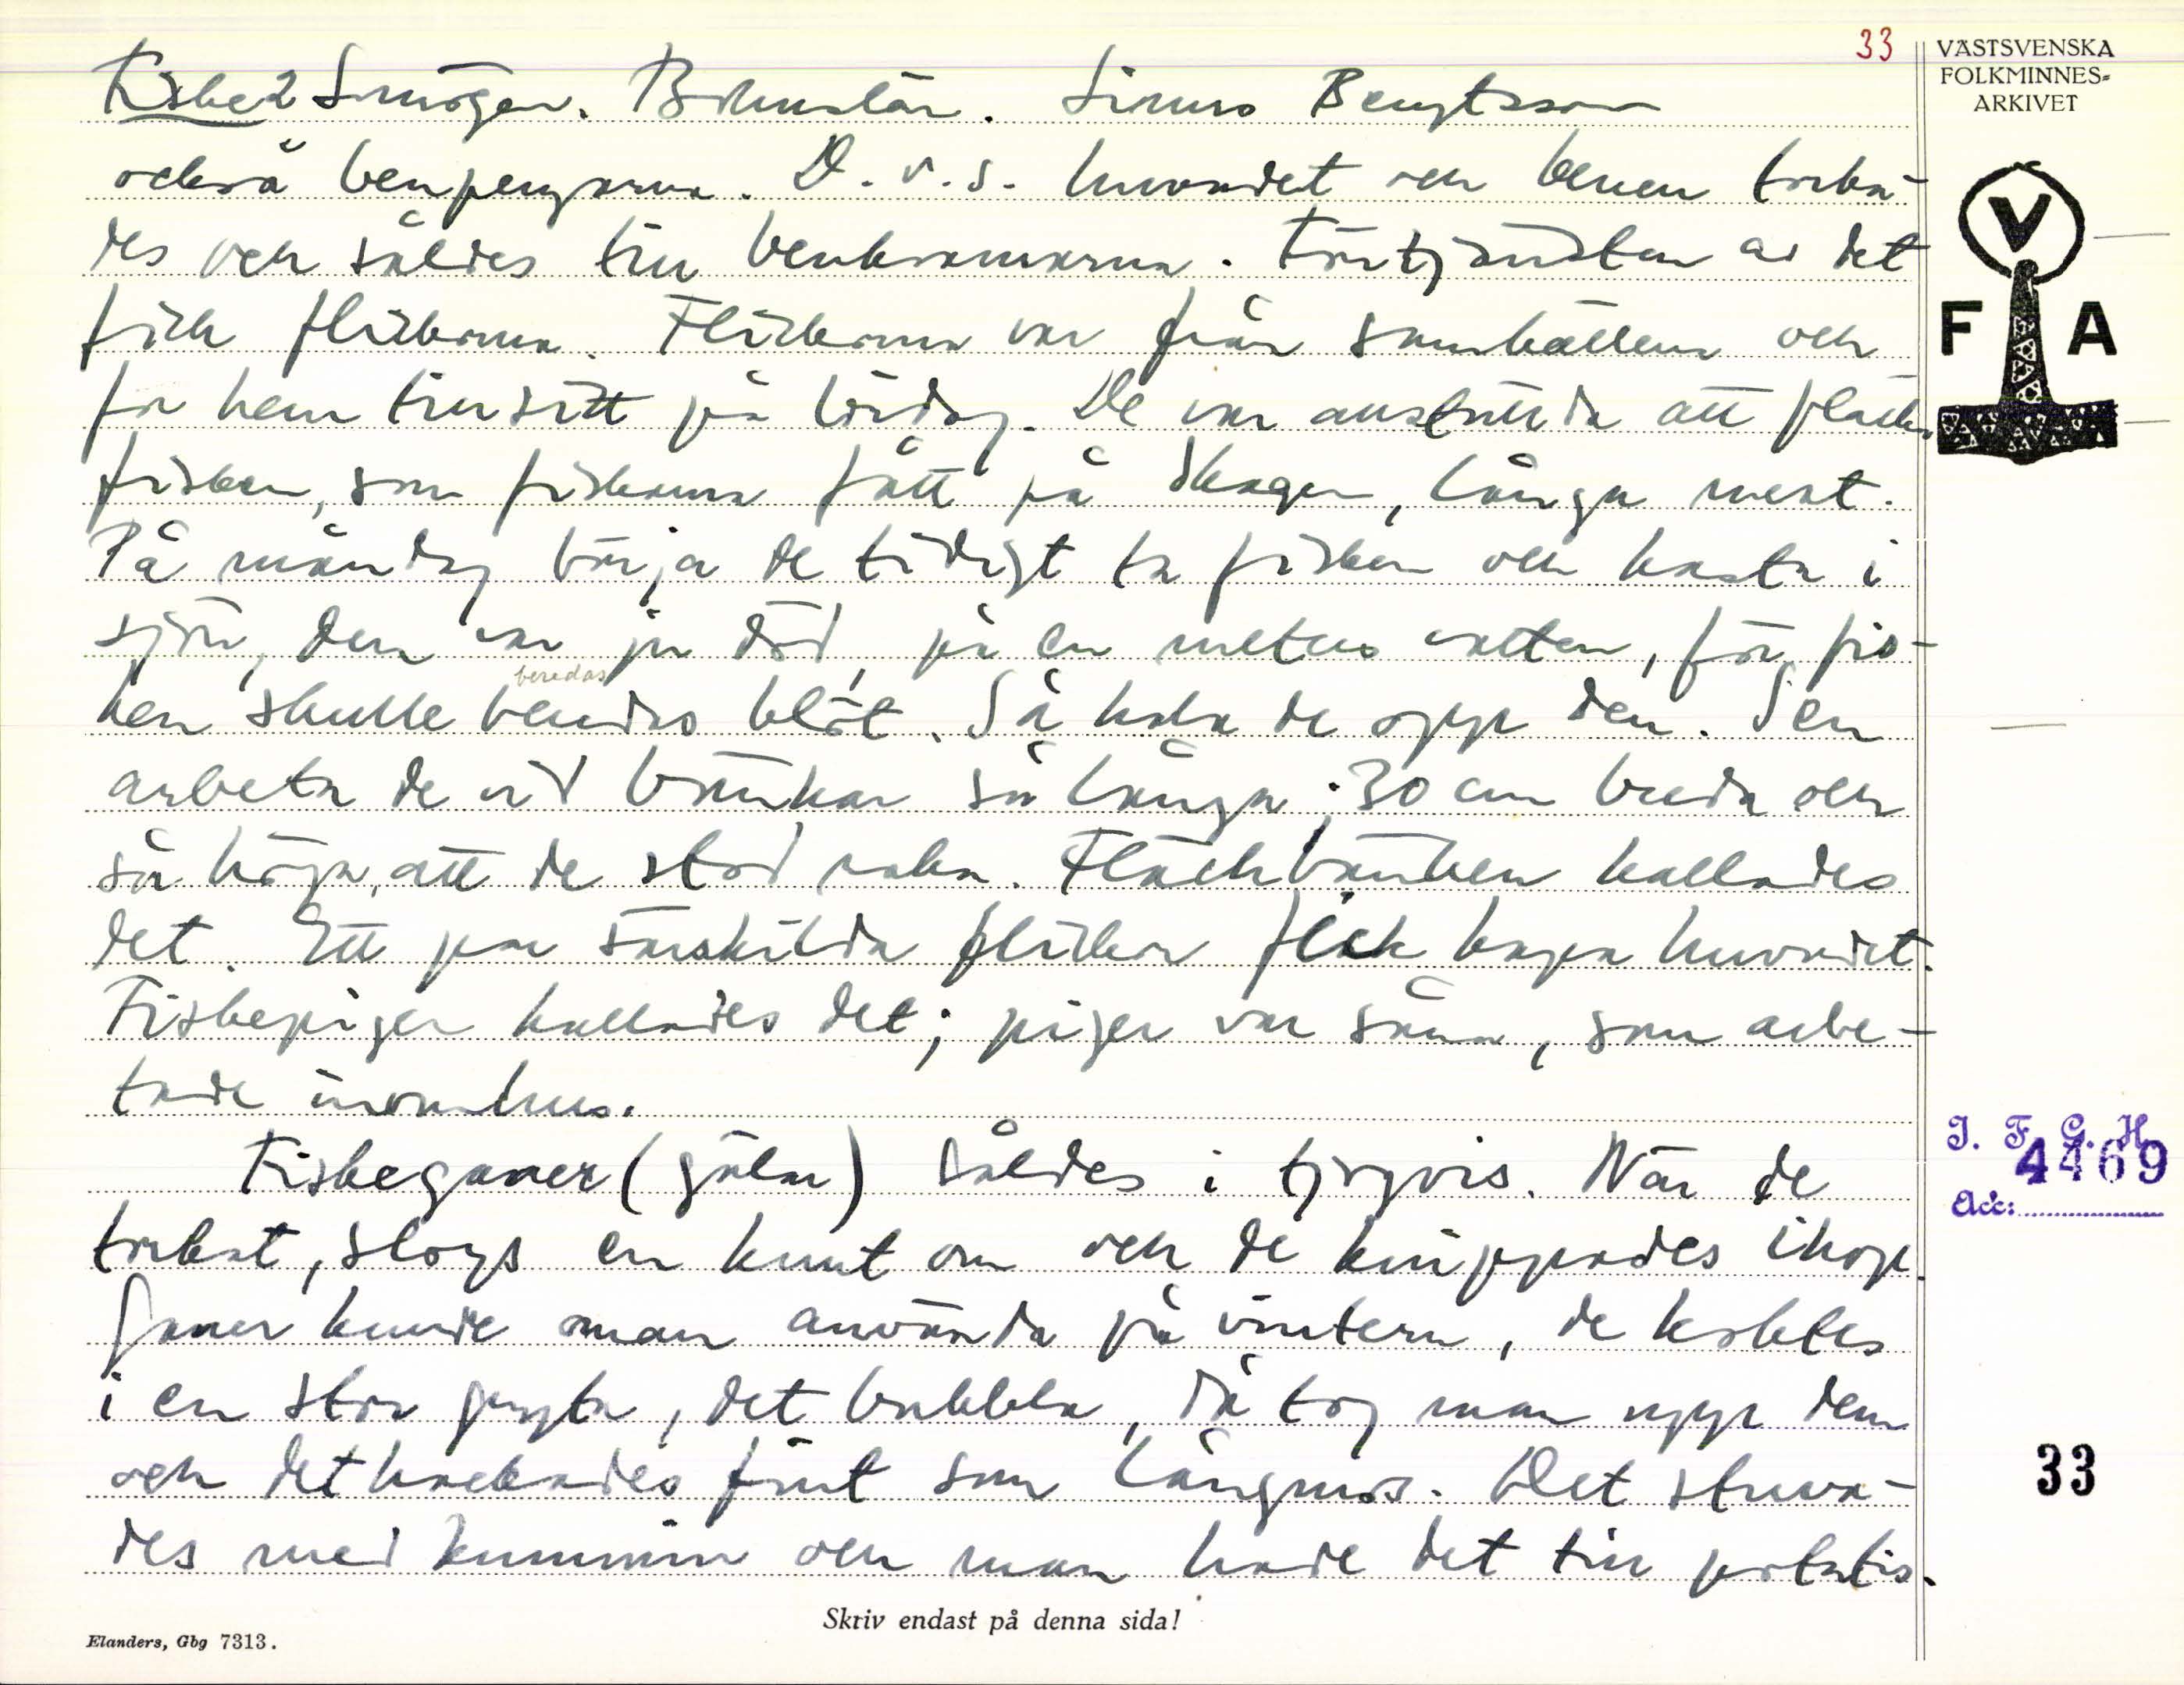 33
VÄSTSVENSKA
FOLKMINNES-
ARKIVET
Fiske 2 Smögen. Bohuslän. Simus Bengtsson
också benpengarna. D.v.s. huvudet och benen torka-
des och såldes till benkramarna. Förtjänsten av det
fick flickorna. Flickorna var från samhällena och
for hem till sitt på lördag. De var anställda att fläcka
fisken, som fiskarna fått på Skagen, långa mest.
På måndag börja de tidigt ta fisken och kasta i
sjön, den var ju död, på en meters vatten, för fis-
beredas
ken skulle beredas blöt. Så haka de opp den. Sen
arbeta de vid bänkar så långa 30 cm breda och
så höga, att de stod raka. Fläckbänken kallades
det. Ett par särskilda flickor fick kapa huvudet.
Fiskepiger kallades det; piger var såna, som arbe-
tade inomhus.
Fiskeganer (gälar) såldes i tjogvis. När de
torkat, slogs en knut om och de knippades ihop.
Ganer kunde man använda på vintern, de koktes
i en stor gryta, det bubbla, då tog man upp dem
och det hackades fint som lungmos. Det stuva-
des med kummin och man hade det till potatis.
V
F A
I. F. G. H.
4469
Acc:
33
Skriv endast på denna sida!
Elanders, Gbg 7313.